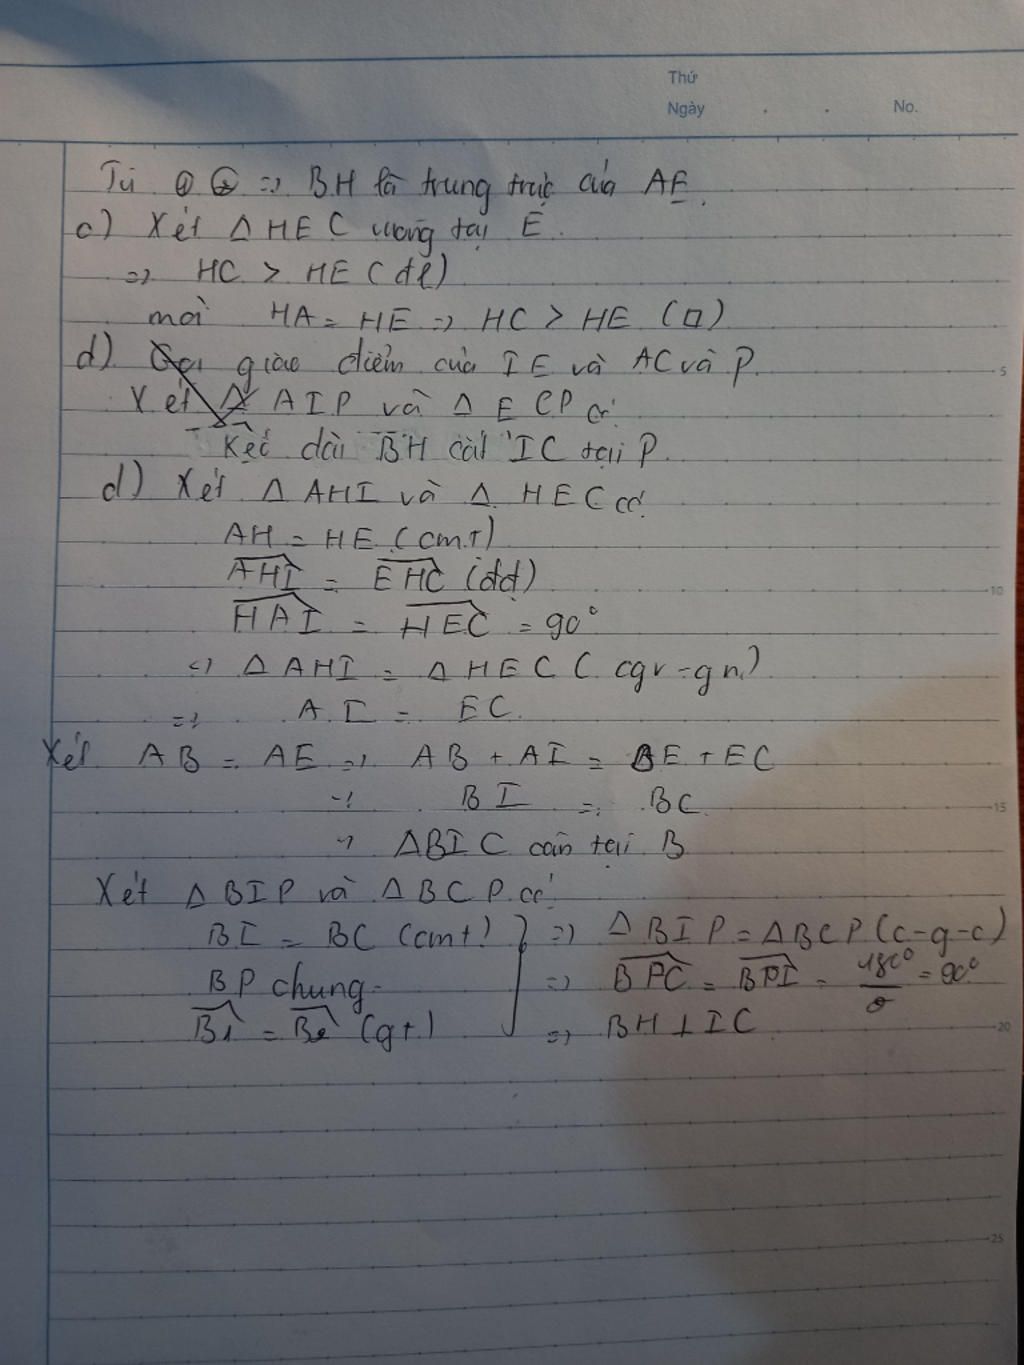 Thứ
Ngày . . No.
Từ ① ② => BH là trung trực của AE.
c) Xét Δ HEC vuông tại E.
=> HC > HE (đl)
mà HA = HE => HC > HE (□)
d) Gọi giao điểm của IE và AC và P.
5
Xét Δ AIP và Δ ECP có
Kéo dài BH cắt IC tại P.
d) Xét Δ AHI và Δ HEC có
AH = HE (cmt)
AHI = EHC (đđ)
10
HAI = HEC = 90°
=> Δ AHI = Δ HEC (cgv-gn)
=> AI = EC.
Xét AB = AE => AB + AI = BE + EC
=> BI = BC
15
=> ΔBIC cân tại B
Xét Δ BIP và Δ BCP có
BI = BC (cmt) } => Δ BIP = Δ BCP (c-g-c)
BP chung. => BPC = BPI = 180°/2 = 90°
B1 = B2 (gt) => BH ⊥ IC
20
25